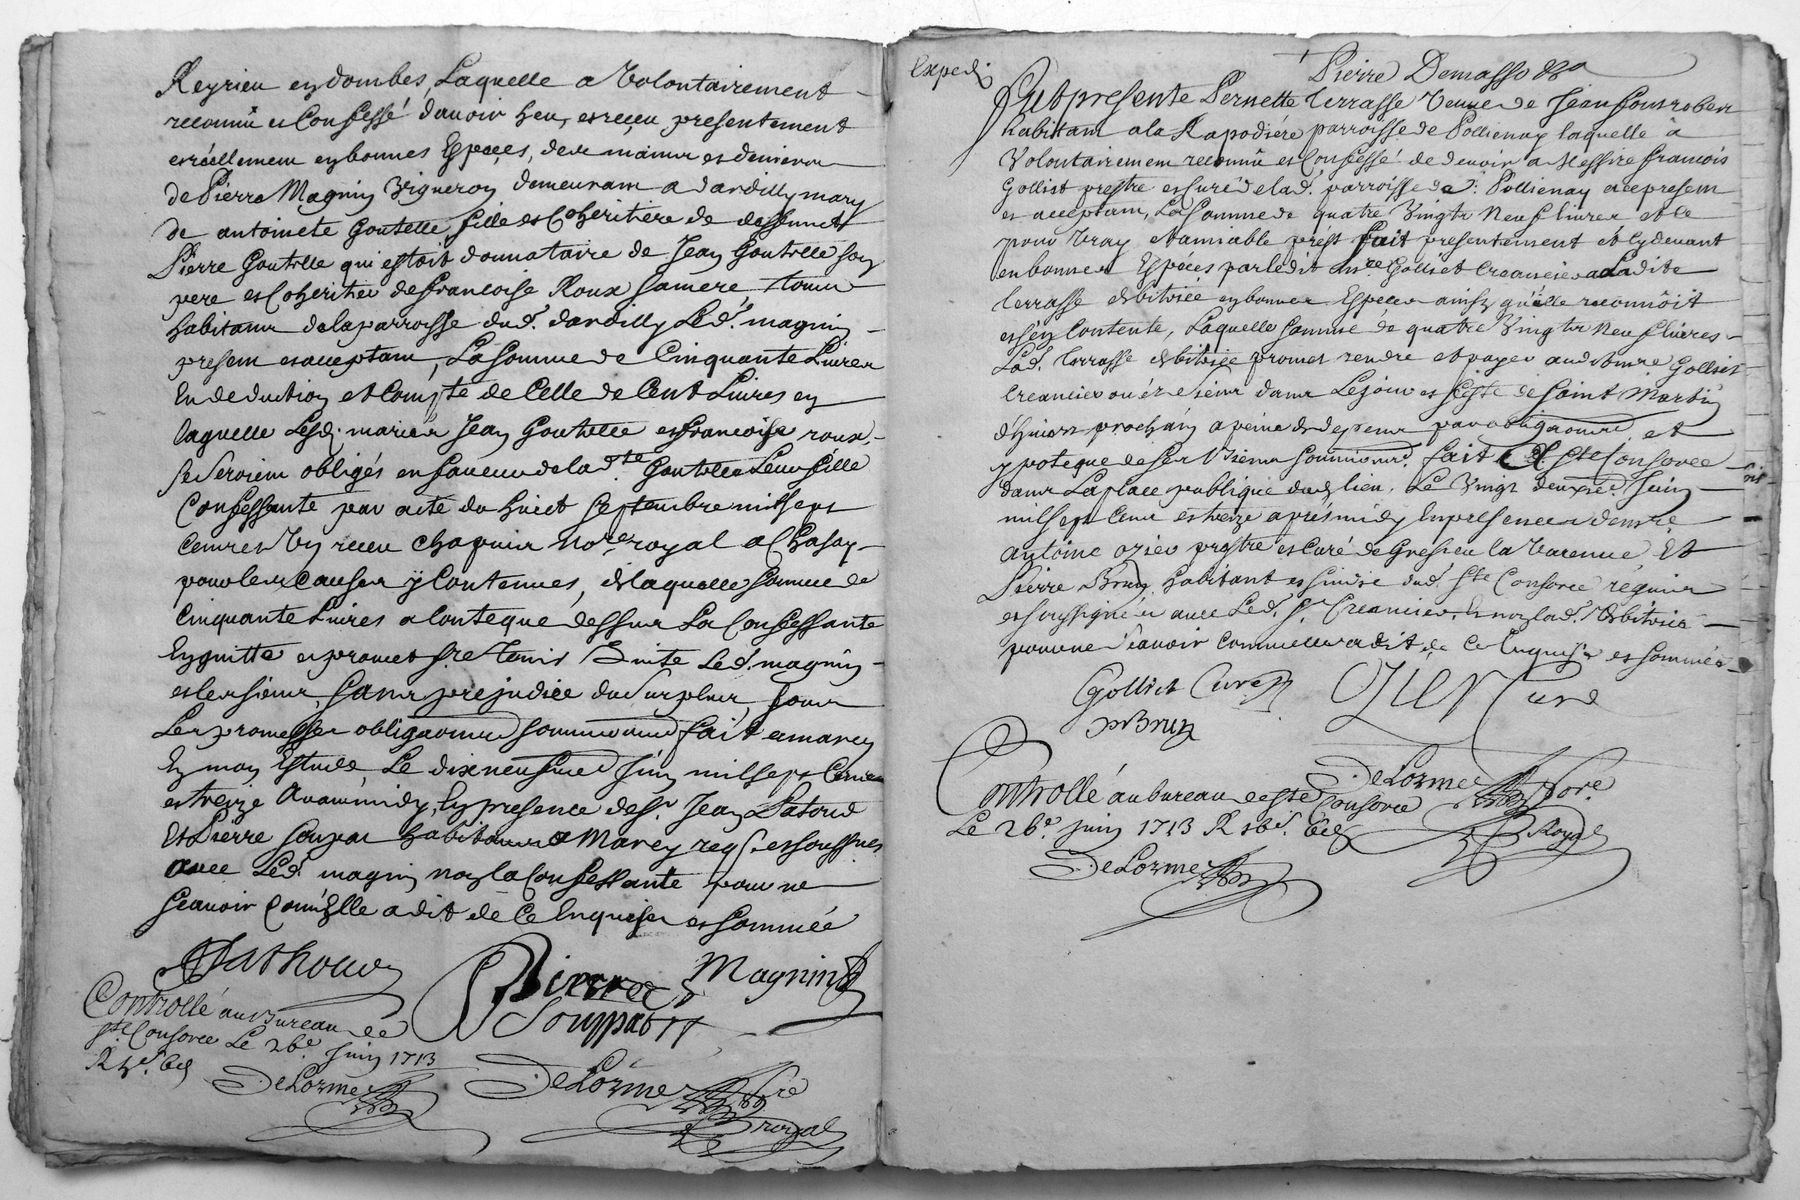 Reyrieu en dombes, Laquelle a Volontairement
reconnu et Confessé d'auoir heu, et reçeu presentement
et réellement en bonnes Especes, des mains et deniers
de Pierre Magnin Vigneron demeurant a dardilly mary
de antoinete Goutelle fille et Coheritiere de deffunct
Pierre Goutelle qui estoit donnataire de Jean Goutelle son
pere et Coheritier de francoise Roux sa mere tous
habitans de la parroisse dud. dardilly Led. magnin
present et acceptant, La Somme de Cinquante Liures
En deduction et Compte de Celle de Cent Liures en
laquelle Lesd. mariés Jean Goutelle et francoise roux
se seroient obligés en faueur de lad.te Goutelle Leur fille
Confessante par acte du huict Septembre mil sept
Cent et Un receu Chapuis no.re royal a Chasay
pour les Causes y Contenues, de laquelle somme de
Cinquante Liures a Conte que dessus La Confessante
En quitte et promet f.re tenir Quite Led. magnin
et les siens, sans prejudice du Surplus, sous
Les promesses obligaõns soumissions fait a marcy
En mon Estude, Le dix neufuie Juin mil sept Cens
et treize auant midy, En presence de s.r Jean Latoud
Et Pierre Soupat habitans a Marcy req.s et soussignés
auec Led. magnin non la Confessante pour ne
Scauoir Comm'Elle a dit de Ce Enquise et sommée
Magnin
Pierre
Souppat
Controllé au Bureau de
s.te Consorce Le 26e. Juin 1713
DeLorme
DeLorme
royal
Expedi
Pierre Demasso
Fut presente Pernette Terrasse Veuue de Jean
habitant a la Rapodiére parroisse de Pollienay laquelle à
Volontairement reconnu et Confessé de deuoir a Messire francois
Golliet prestre et Curé de lad. parroisse de Pollienay ace present
et acceptant, La Somme de quatre Vingts Neuf liures et Ce
pour Vray et amiable prest fait presentement et Cy deuant
en bonnes Espèces par ledit m.re Golliet Creancier a Ladite
Terrasse debitrice en bonnes Especes ainsy qu'elle reconnoit
et s'en Contente, Laquelle somme de quatre Vingts Neuf liures
Lad. Terrasse debitrice promet rendre et payer audit m.re Golliet
Creancier ou és siens dans Le jour et feste de saint Martin
d'hiuers prochain a peine de despens par obligaõn et
ypoteque de ses biens soumissions. fait a S.te Consorce
dans La place publique dud. lieu, Le Vingt deuxie. Juin
mil sept Cens et treize aprés midy En presence de m.re
antoine ozier prestre et Curé de Gresieu la Varenne Et
Pierre Brun habitant et sindic dud. S.te Consorce requis
et soussignés auec Led. S.r Creancier, Et non lad. debitrice
pour ne Scauoir Comme elle a dit de Ce Enquise et sommée
Golliet Curé
Ozier Curé
P Brun
DeLorme No.re
Royal
Controllé au bureau de ste Consorce
Le 26e. juin 1713
DeLorme